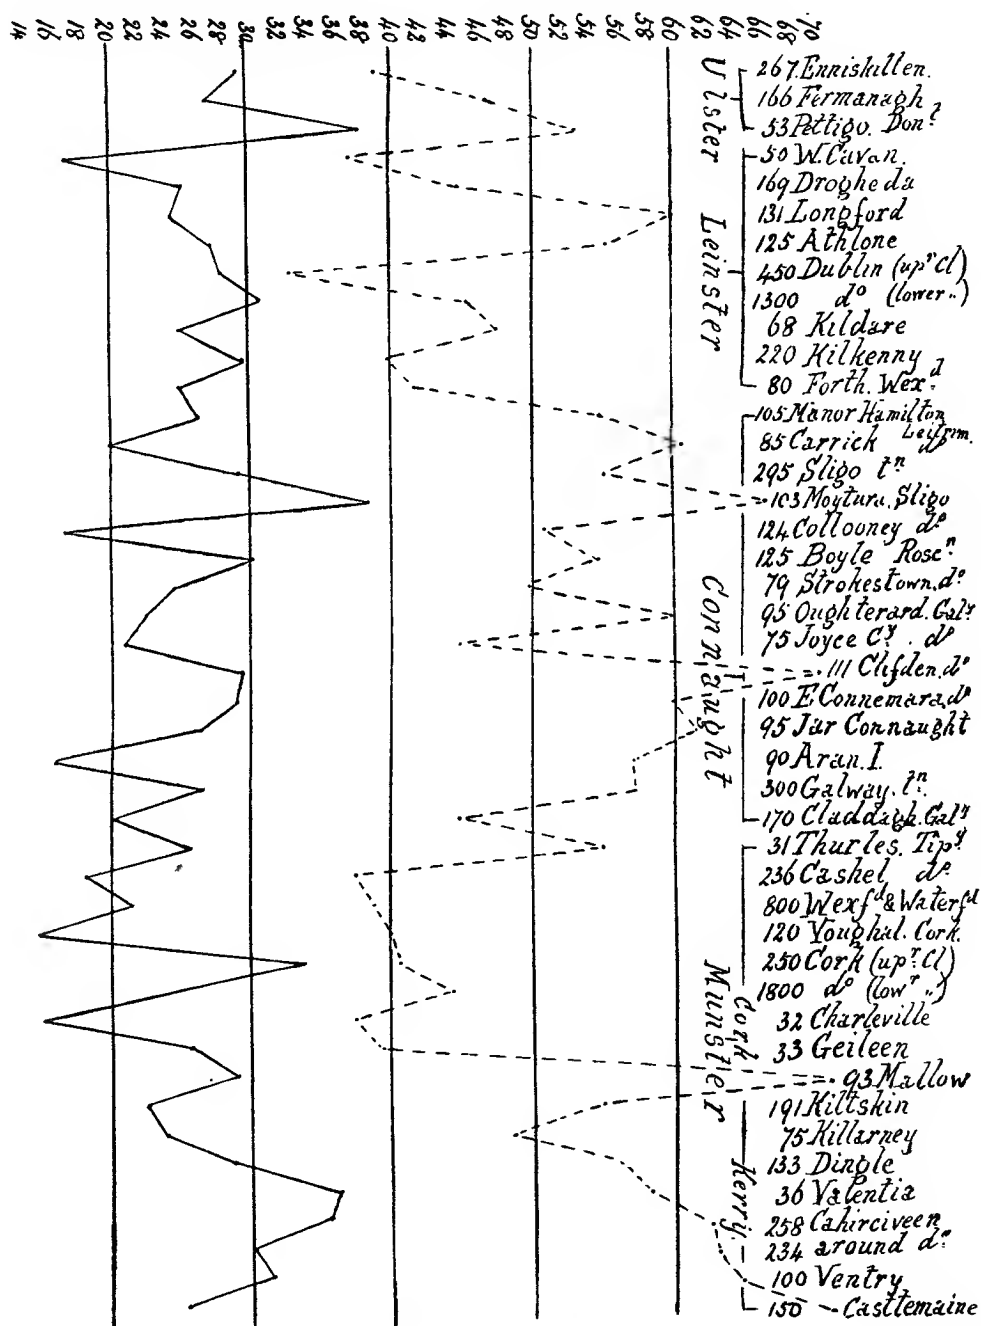 14 16 18 20 22 24 26 28 30 32 34 36 38 40 42 44 46 48 50 52 54 56 58 60 62 64 66 68 70
Ulster
267 Enniskillen.
166 Fermanagh
53 Pettigo. Don.l
Leinster
50 W. Cavan.
169 Drogheda
131 Longford
125 Athlone
450 Dublin (up.r Cl)
1300 do (lower „)
68 Kildare
220 Kilkenny
80 Forth. Wex.d
Connaught
105 Manor Hamilton
Leitrim.
85 Carrick do
295 Sligo tn
103 Moytura. Sligo
124 Collooney do
125 Boyle Rosc.n
79 Strokestown. do
95 Oughterard. Gal.y
75 Joyce C.y. do
111 Clifden. do
100 E Connemara do
95 Jar Connaught
90 Aran. I.
300 Galway. tn.
170 Claddagh. Gal.y
Munster
31 Thurles. Tip.y
236 Cashel do
800 Wexf.d & Waterf.d
120 Youghal. Cork.
Cork
250 Cork (up.r Cl)
1800 do (low.r „)
32 Charleville
33 Geileen
93 Mallow
191 Kiltskin
Kerry.
75 Killarney
133 Dingle
36 Valentia
258 Cahirciveen
234 around do
100 Ventry
150 Casttemaine